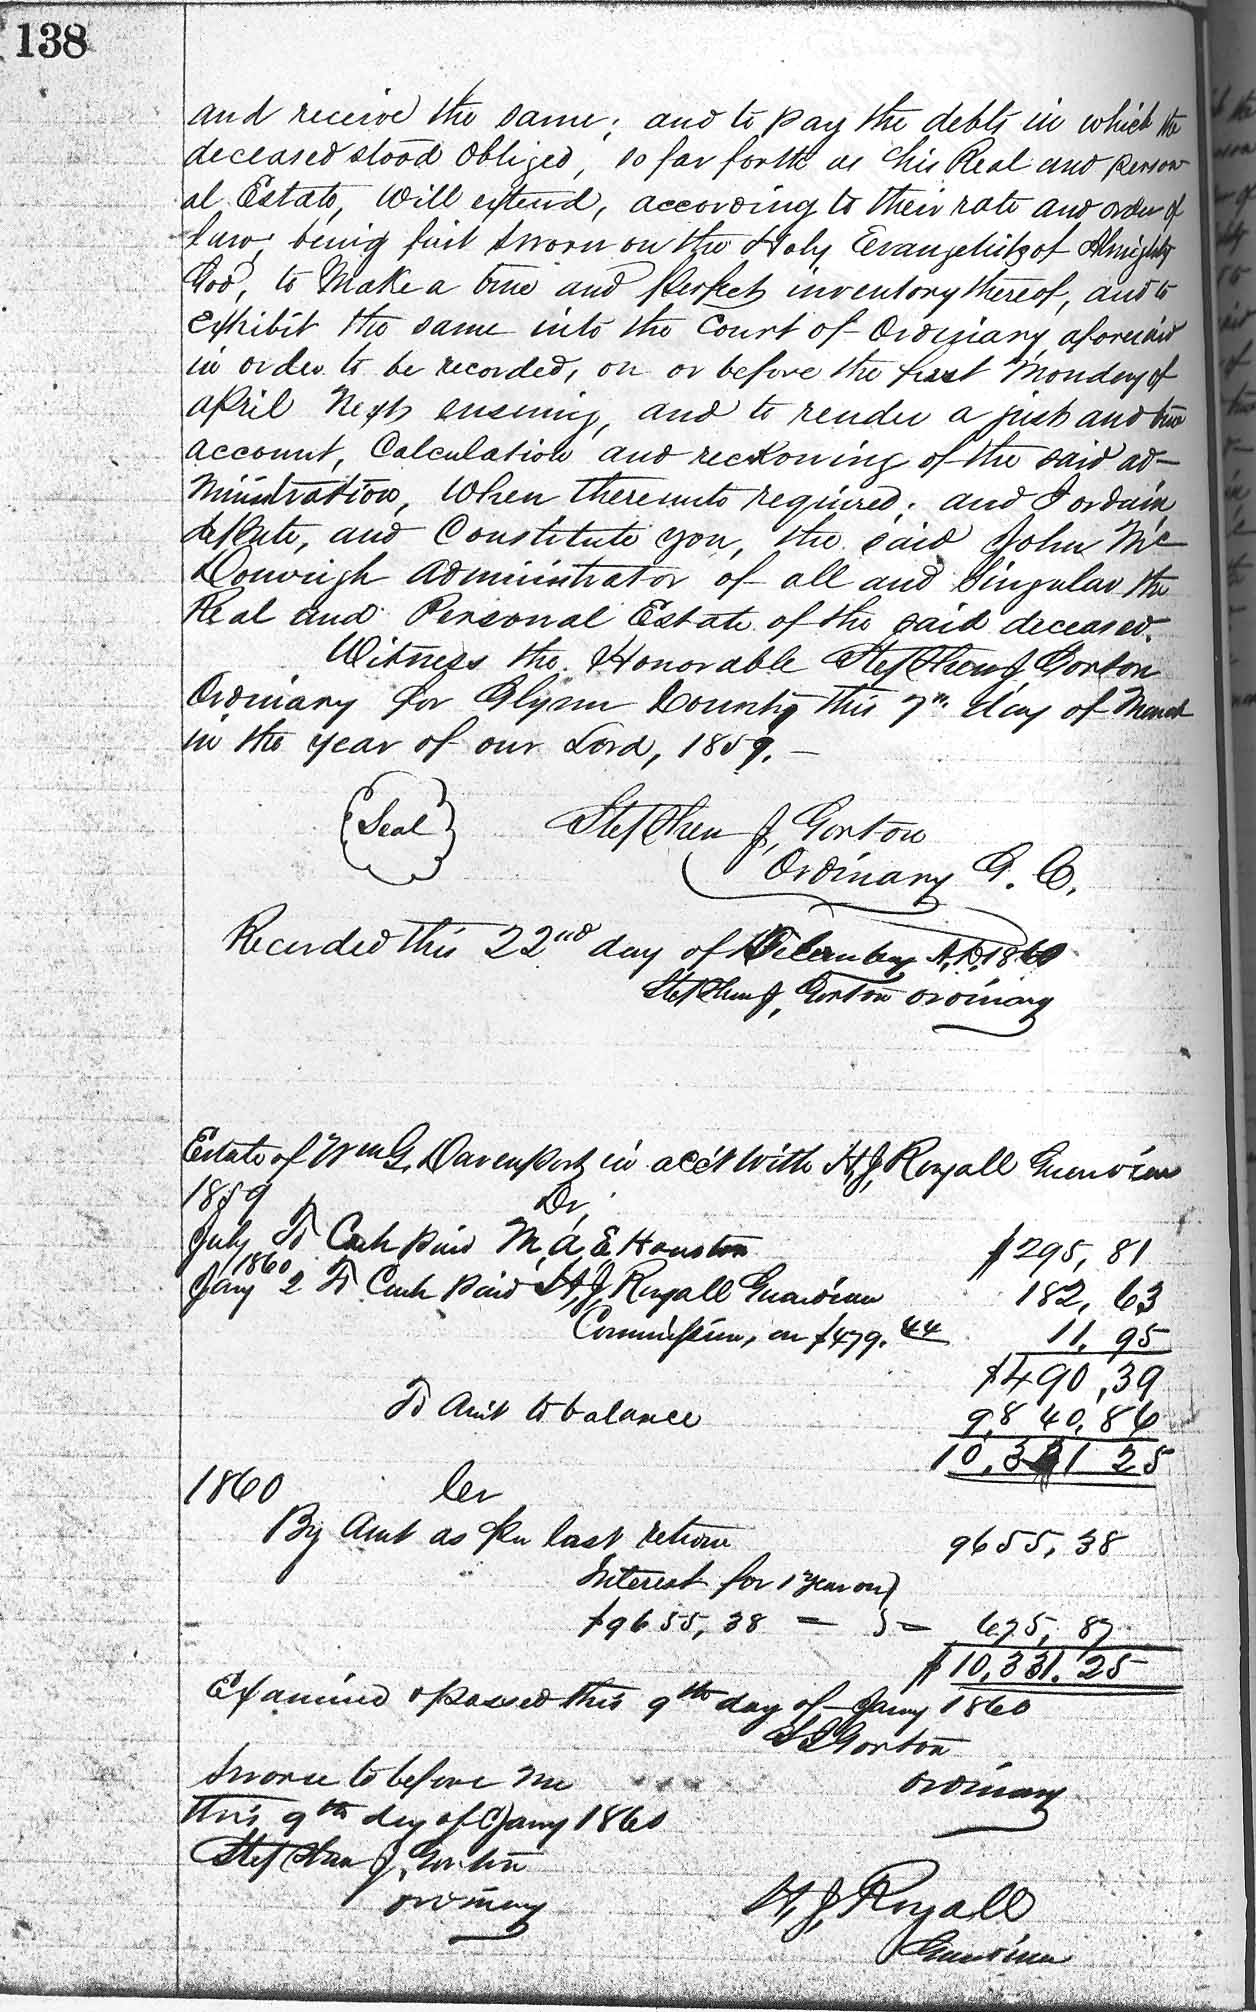 138
and receive the same; and to pay the debts in which the
deceased stood obliged, so far forth as his Real and person-
al Estate, will extend, according to their rate and order of
law, being first sworn on the Holy Evangelists of Almighty
God, to Make a true and perfect inventory thereof, and to
exhibit the same into the Court of Ordinary aforesaid
in order to be recorded, on or before the first Monday of
april Next ensuing, and to render a just and true
account, Calculation and reckoning of the said ad-
ministration, when thereunto required. and I ordain
depute, and Constitute you, the said John Mc
Donough administrator of all and Singular the
Real and Personal Estate of the said deceased.
Witness the Honorable Stephen J, Gorton
Ordinary for Glynn County this 7th day of March
in the year of our Lord, 1859. —
Seal
Stephen J, Gorton
Ordinary G. C.
Recorded this 22nd day of February A.D. 1860
Stephen J, Gorton ordinary
Estate of Wm G. Davenport in acc't with H, J, Royall Guardian
1859 Dr,
July To Cash paid M, A, E Houston $295, 81
1860
Jany 2 To Cash paid H, J, Royall Guardian 182, 63
Commission, on $479. 44 11, 95
$490,39
To Amt to balance 9,840,86
10,331 25
1860 Cr
By Amt as per last return 9655, 38
Interest for 1 year on
$9655, 38 — 675, 87
$10,331.25
Examined & passed this 9th day of Jany 1860
S J Gorton
ordinary
Sworn to before me
this 9th day of Jany 1860
Stephen J, Gorton
ordinary
H, J, Royall
Guardian